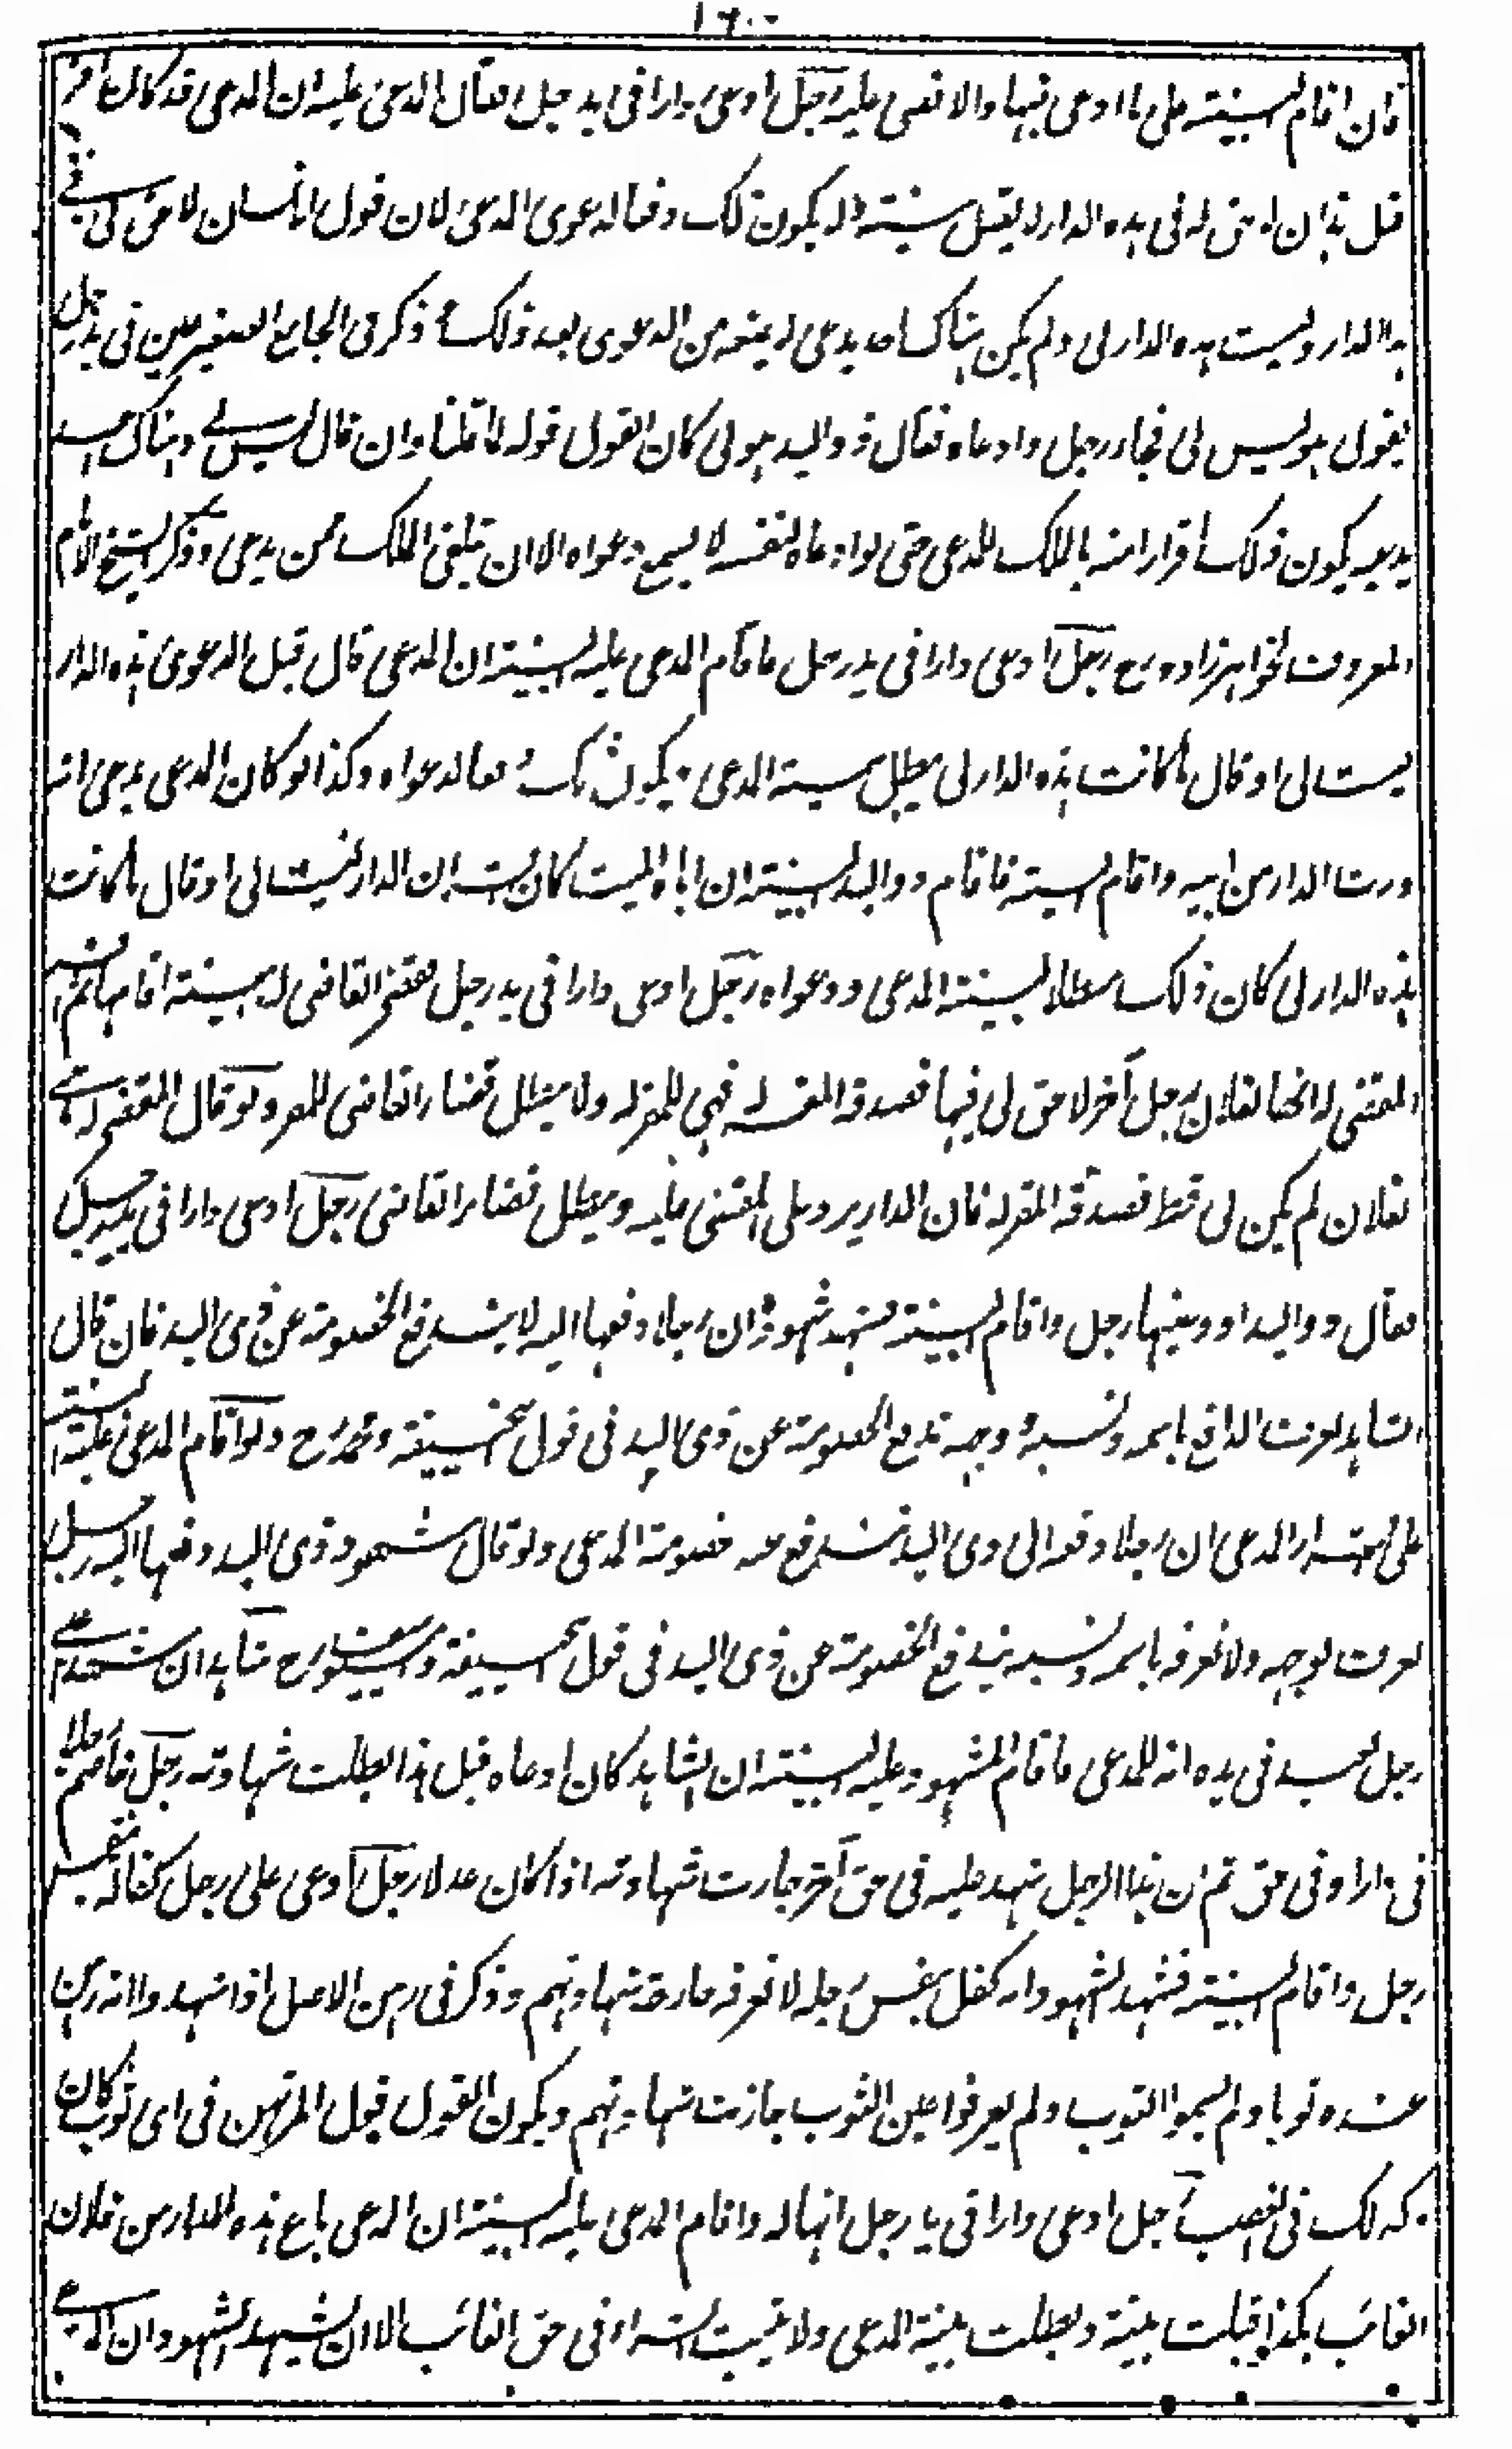 ١٦٠
فان اقام البينة على ما ادعى فبها والا قضى عليه رجل ادعى دارا فى يد رجل فقال المدعى عليه ان المدعى قد كان اقر
قبل هذا ان لا حق له فى هذه الدار لا يقبل بينته ولا يكون ذلك دفعا لدعوى المدعى لان قول الانسان لا حق لى فى
هذا الدار وليست هذه الدار لى ولم يكن هناك احد يدعى لا يمنعه من الدعوى بعد ذلك وذكر فى الجامع الصغير عين فى يد رجل
يقول هو ليس لى فجاء رجل وادعاه فقال ذو اليد هو لى كان القول قوله لما قلنا وان قال ليس لى وهناك احد
يدعيه يكون ذلك اقرارا منه بالملك للمدعى حتى لو ادعاه لنفسه لا يسمع دعواه الا ان تلقى الملك ممن يدعى وذكر الشيخ الامام
المعروف بخواهرزاده رح رجل ادعى دارا فى يد رجل فاقام المدعى عليه البينة ان المدعى قال قبل الدعوى هذه الدار
ليست لى او قال ما كانت هذه الدار لى يبطل بينة المدعى ويكون ذلك دفعا لدعواه وكذا لو كان المدعى يدعى انه
ورث الدار من ابيه واقام البينة فاقام ذو اليد البينة ان اباه الميت كان ان الدار ليست لى او قال ما كانت
هذه الدار لى كان ذلك مبطلا لبينة المدعى ودعواه رجل ادعى دارا فى يد رجل فقضى القاضى له ببينة اقامها ثم اقر
المقضى له انها لفلان رجل آخر لا حق لى فيها فصدقه المقر له فهى للمقر له ولا يبطل قضاء القاضى للمقر ولو قال المقضى له هى
لفلان لم يكن لى قط فصدقه المقر له فان الدار يرد على المقضى عليه ويبطل قضاء القاضى رجل ادعى دارا فى يد رجل
فقال ذو اليد اودعنيها رجل واقام البينة فشهد شهوده ان رجلا دفعها اليه لا يندفع الخصومة عن ذى اليد فان قال
الشاهد نعرف الدافع باسمه ونسبه ووجهه تدفع الخصومة عن ذى اليد فى قول ابى حنيفة ومحمد رح ولو اقام المدعى عليه البينة
على اقرار المدعى ان رجلا دفعه الى ذى اليد تندفع عنه خصومة المدعى ولو قال شهود ذى اليد دفعها اليه رجل
نعرف بوجهه ولا نعرفه باسمه ونسبه يندفع الخصومة عن ذى اليد فى قول ابى حنيفة رح شاهدان شهدا على
رجل بشىء فى يده انه للمدعى فاقام المشهود عليه البينة ان الشاهد كان ادعاه قبل هذا بطلت شهادته رجل خاصم رجلا
فى دار او فى حق ثم ان هذا الرجل شهد عليه فى حق آخر جازت شهادته اذا كان عدلا رجل ادعى على رجل كفالة بنفس
رجل واقام البينة فشهد الشهود انه كفل بنفس رجل لا نعرفه جازت شهادتهم وذكر فى رهن الاصل اذا شهدوا انه رهن
عنده ثوبا ولم يسموا الثوب ولم يعرفوا عين الثوب جازت شهادتهم ويكون القول قول المرتهن فى اى ثوب كان
وكذلك فى الغصب رجل ادعى دارا فى يد رجل انها له واقام المدعى عليه البينة ان المدعى باع هذه الدار من فلان
الغائب بكذا قبلت بينته وبطلت بينة المدعى ولا يثبت الشراء فى حق الغائب الا ان يشهد الشهود ان المدعى